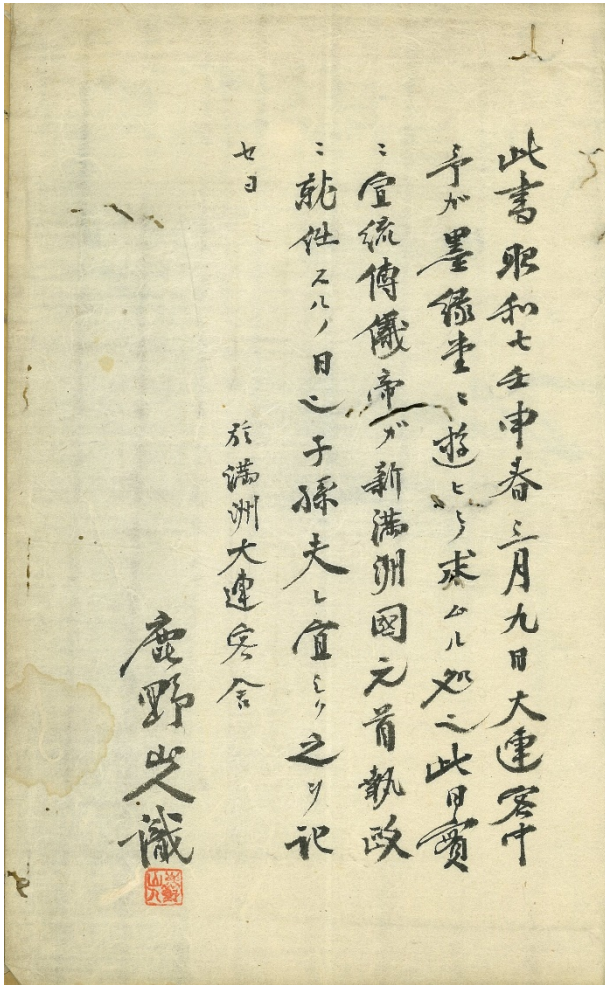 此書昭和七壬申春三月九日大連客中
予ガ墨縁堂ニ遊ヒテ求ムル処也此日實
ニ宣統傳儀帝ガ新満洲國元首執政
ニ就任スルノ日也子孫夫レ宜シク之ヲ記
セヨ
於満洲大連客舎
鹿野山人識